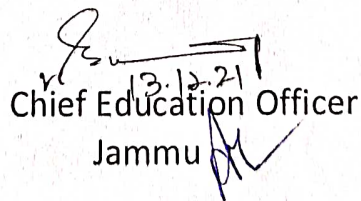 13.12.21
Chief Education Officer
Jammu